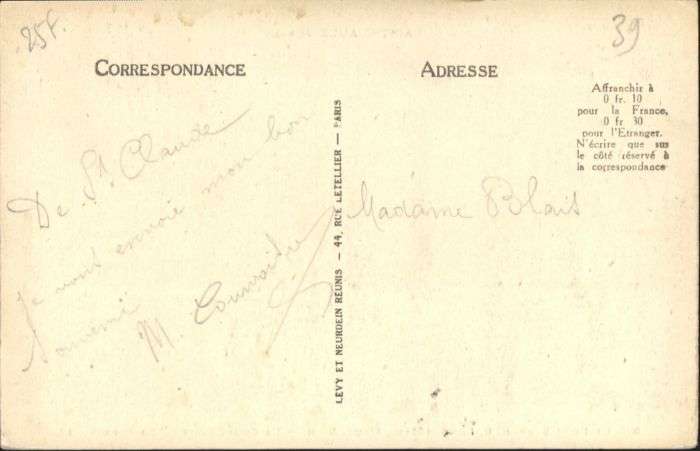 25f.
39
CORRESPONDANCE
ADRESSE
Affranchir à
0 fr. 10
pour la France,
0 fr 30
pour l'Etranger.
N'écrire que sur
le côté réservé à
la correspondance
De St. Claude
Je vous envoie mon bon
souvenir
M.
Madame Blais
LEVY ET NEURDEIN RÉUNIS — 44, RUE LETELLIER — PARIS